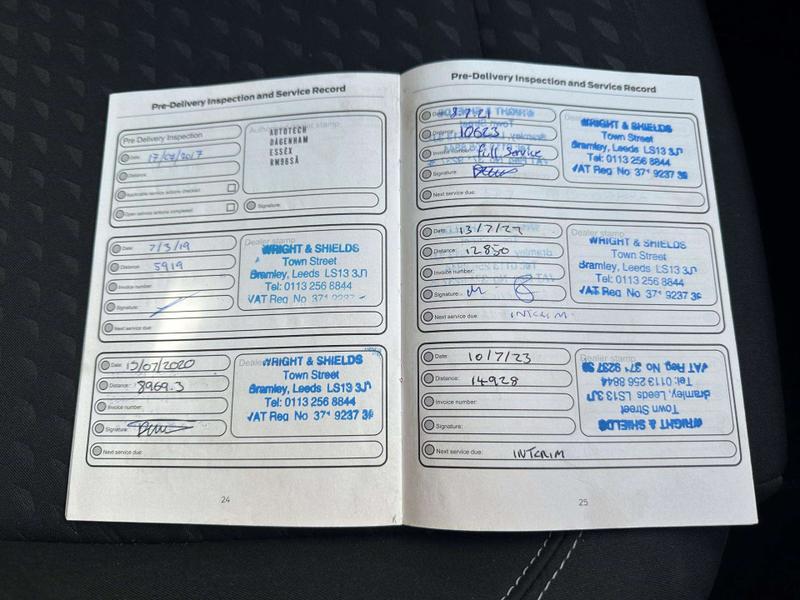 Pre-Delivery Inspection and Service Record
Pre Delivery Inspection
Date: 17/02/2017
Distance:
Applicable service actions checked
Open service actions completed
AUTOTECH
DAGENHAM
ESSEX
RM96SA
Signature:
Date: 7/3/19
Distance: 5919
Invoice number:
Signature:
Next service due:
Dealer stamp
WRIGHT & SHIELDS
Town Street
Bramley, Leeds LS13 3JT
Tel: 0113 256 8844
VAT Reg No 371 9237
Date: 15/07/2020
Distance: 8969.3
Invoice number:
Signature:
Next service due:
WRIGHT & SHIELDS
Town Street
Bramley, Leeds LS13 3JT
Tel: 0113 256 8844
VAT Reg No 371 9237 36
24
Pre-Delivery Inspection and Service Record
8.7.21
10623
Full Service
Signature:
Next service due:
WRIGHT & SHIELDS
Town Street
Bramley, Leeds LS13 3JT
Tel: 0113 256 8844
VAT Reg No 371 9237 36
Date: 13/7/22
Distance: 12850
Invoice number:
Signature:
Next service due: INTERIM
Dealer stamp
WRIGHT & SHIELDS
Town Street
Bramley, Leeds LS13 3JT
Tel: 0113 256 8844
VAT Reg No 371 9237 36
Date: 10/7/23
Distance: 14928
Invoice number:
Signature:
Next service due: INTERIM
Dealer stamp
WRIGHT & SHIELDS
Town Street
Bramley, Leeds LS13 3JT
Tel: 0113 256 8844
VAT Reg No 371 9237 36
25